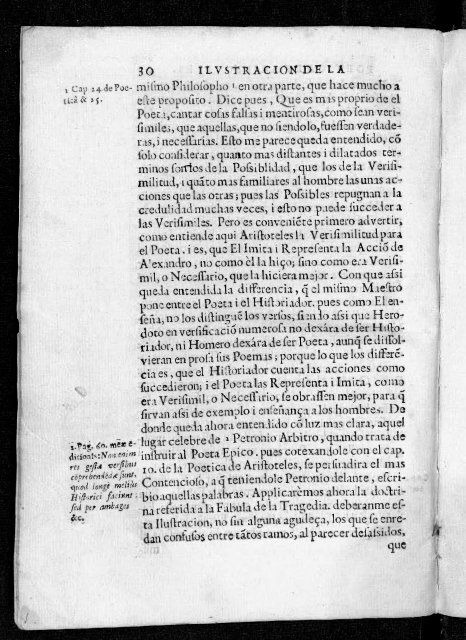 30 ILVSTRACION DE LA
1 Cap 24. de Poe-
tica & 25.
mismo Philosopho 1 en otra parte, que hace mucho a
este proposito. Dice pues, Que es mas proprio de el
Poeta, cantar cosas falsas i mentirosas, como sean veri-
similes, que aquellas, que no siendolo, fuessen verdade-
ras, i necessarias. Esto me parece queda entendido, cõ
solo considerar, quanto mas distantes i dilatados ter-
minos son los de la Possiblidad, que los de la Verisi-
militud, i quãto mas familiares al hombre las unas ac-
ciones que las otras; pues las Possibles repugnan a la
credulidad muchas veces, i esto no puede succeder a
las Verisimiles. Pero es conveniẽte primero advertir,
como entiende aqui Aristoteles la Verisimilitud para
el Poeta. i es, que El Imita i Representa la Acciõ de
Alexandro, no como èl la hiço; sino como era Verisi-
mil, o Necessario, que la hiciera mejor. Con que assi
queda entendida la differencia, q̃ el mismo Maestro
pone entre el Poeta i el Historiador. pues como El en-
seña, no los distinguẽ los versos, siendo assi que Hero-
doto en versificaciõ numerosa no dexára de ser Histo-
riador, ni Homero dexára de ser Poeta, aunq̃ se dissol-
vieran en prosa sus Poemas; porque lo que los differẽ-
cia es, que el Historiador cuenta las acciones como
succedieron; i el Poeta las Representa i Imita, como
era Verisimil, o Necessario, se obrassen mejor, para q̃
sirvan assi de exemplo i enseñança a los hombres. De
donde queda ahora entendido cõ luz mas clara, aquel
lugar celebre de 2 Petronio Arbitro, quando trata de
instruir al Poeta Epico. pues cotexandole con el cap.
10. de la Poetica de Aristoteles, se persuadira el mas
Contencioso, a q̃ teniendole Petronio delante, escri-
bio aquellas palabras. Applicarèmos ahora la doctri-
na referida a la Fabula de la Tragedia. deberanme es-
ta Ilustracion, no sin alguna agudeça, los que se enre-
dan confusos entre tãtos ramos, al parecer desasidos,
que
2. Pag. 60. meæ e-
ditionis: Non enim
res gestæ versibus
coprehendendæ sunt,
quod longè melius
Historici faciunt:
sed per ambages
&c.